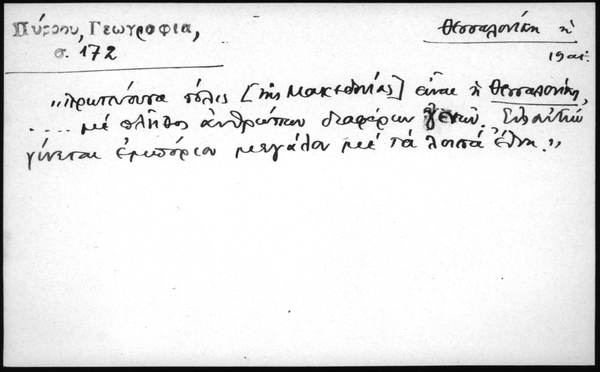 Πύρρου, Γεωγραφια,
σ. 172
Θεσσαλονίκη ἡ
19 αι.
„Πρωτεύουσα πόλις [τῆς Μακεδονίας] εἶναι ἡ Θεσσαλονίκη,
.... μὲ πλῆθος ἀνθρώπων διαφόρων γενῶν. Εἰς αὐτὴν
γίνεται ἐμπόριον μεγάλον μὲ τὰ λοιπὰ ἔθνη."